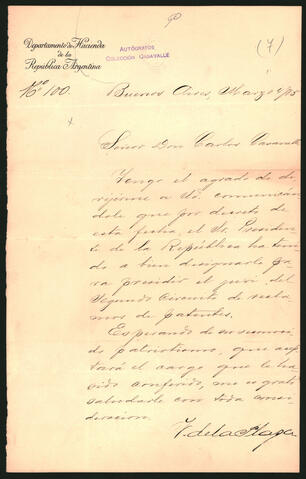 (7)
AUTÓGRAFOS
COLECCIÓN CASAVALLE
Departamento de Hacienda
de la
República Argentina
Nº 100.
Buenos Aires, Marzo
Señor Don Carlos Casavalle
Tengo el agrado de di-
rijirme a Ud. comunicán-
dole que por decreto de
esta fecha, el Sr. Presiden-
te de la República ha teni-
do a bien designarlo pa-
ra presidir el juri del
Segundo Circuito de recla-
mos de patentes.
Esperando de su reconoci-
do patriotismo, que acep-
tará el cargo que le ha
sido conferido, me es grato
saludarle con toda consi-
deracion.
V. de la Plaza